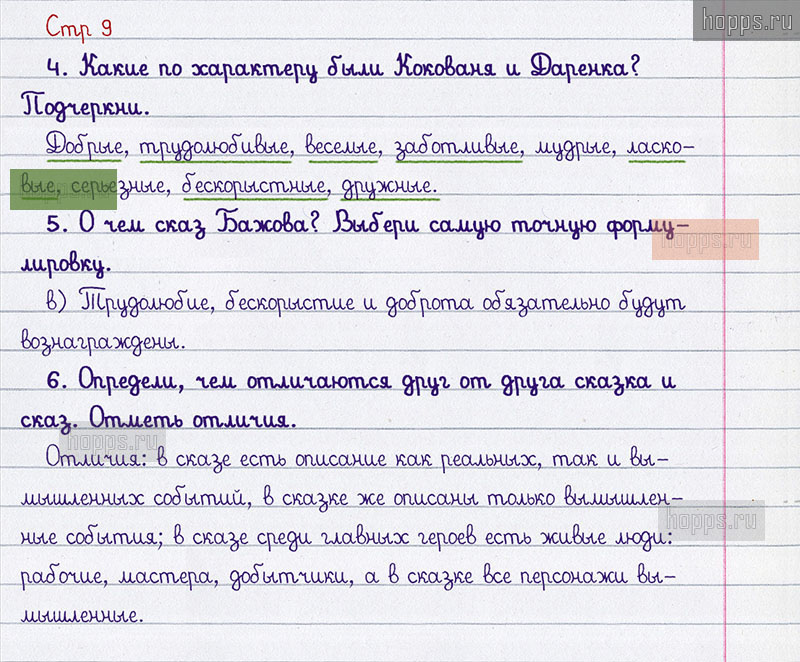 Стр 9
hopps.ru
4. Какие по характеру были Кокованя и Даренка?
Подчеркни.
Добрые, трудолюбивые, веселые, заботливые, мудрые, ласко-
вые, серьезные, бескорыстные, дружные.
5. О чем сказ Бажова? Выбери самую точную форму-
hopps.ru
лировку.
в) Трудолюбие, бескорыстие и доброта обязательно будут
вознаграждены.
6. Определи, чем отличаются друг от друга сказка и
сказ. Отметь отличия.
hopps.ru
Отличия: в сказе есть описание как реальных, так и вы-
мышленных событий, в сказке же описаны только вымышлен-
hopps.ru
ные события; в сказе среди главных героев есть живые люди:
рабочие, мастера, добытчики, а в сказке все персонажи вы-
мышленные.